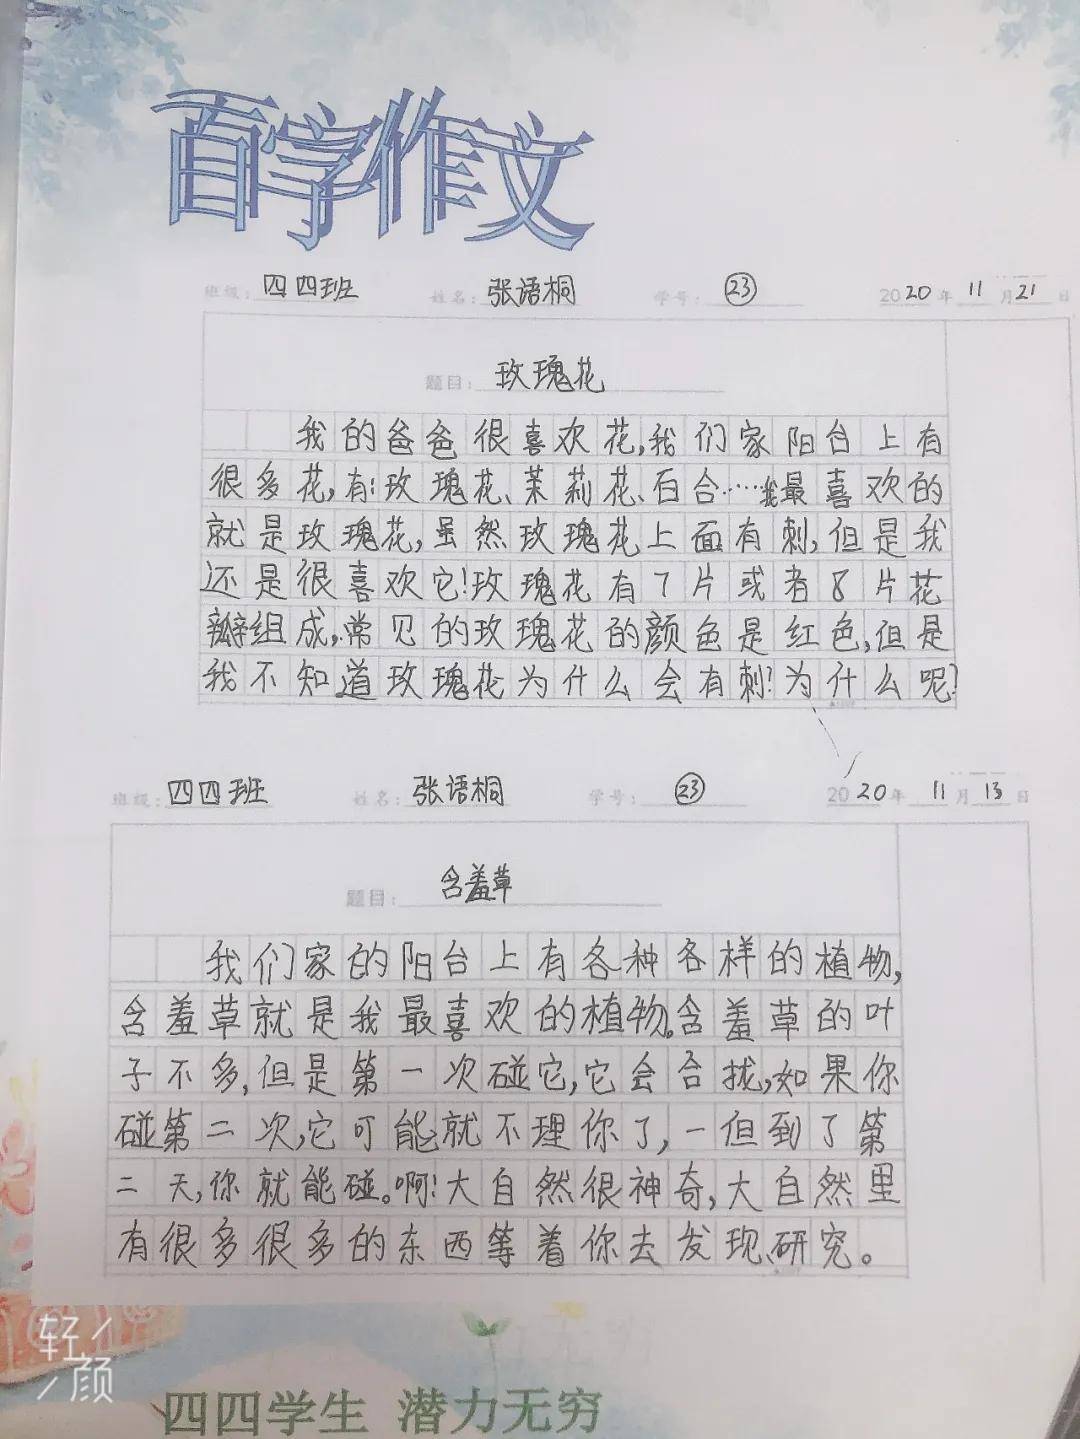 百字作文
班级：四四班 姓名：张语桐 学号：23 2020年11月21
题目：玫瑰花
我的爸爸很喜欢花,我们家阳台上有
很多花,有:玫瑰花、茉莉花、百合……我最喜欢的
就是玫瑰花,虽然玫瑰花上面有刺,但是我
还是很喜欢它!玫瑰花有7片或者8片花
瓣组成,常见的玫瑰花的颜色是红色,但是
我不知道玫瑰花为什么会有刺?为什么呢?
班级：四四班 姓名：张语桐 学号：23 2020年11月13日
题目：含羞草
我们家的阳台上有各种各样的植物,
含羞草就是我最喜欢的植物。含羞草的叶
子不多,但是第一次碰它,它会合拢,如果你
碰第二次,它可能就不理你了,一但到了第
二天,你就能碰。啊!大自然很神奇,大自然里
有很多很多的东西等着你去发现、研究。
轻颜
四四学生 潜力无穷